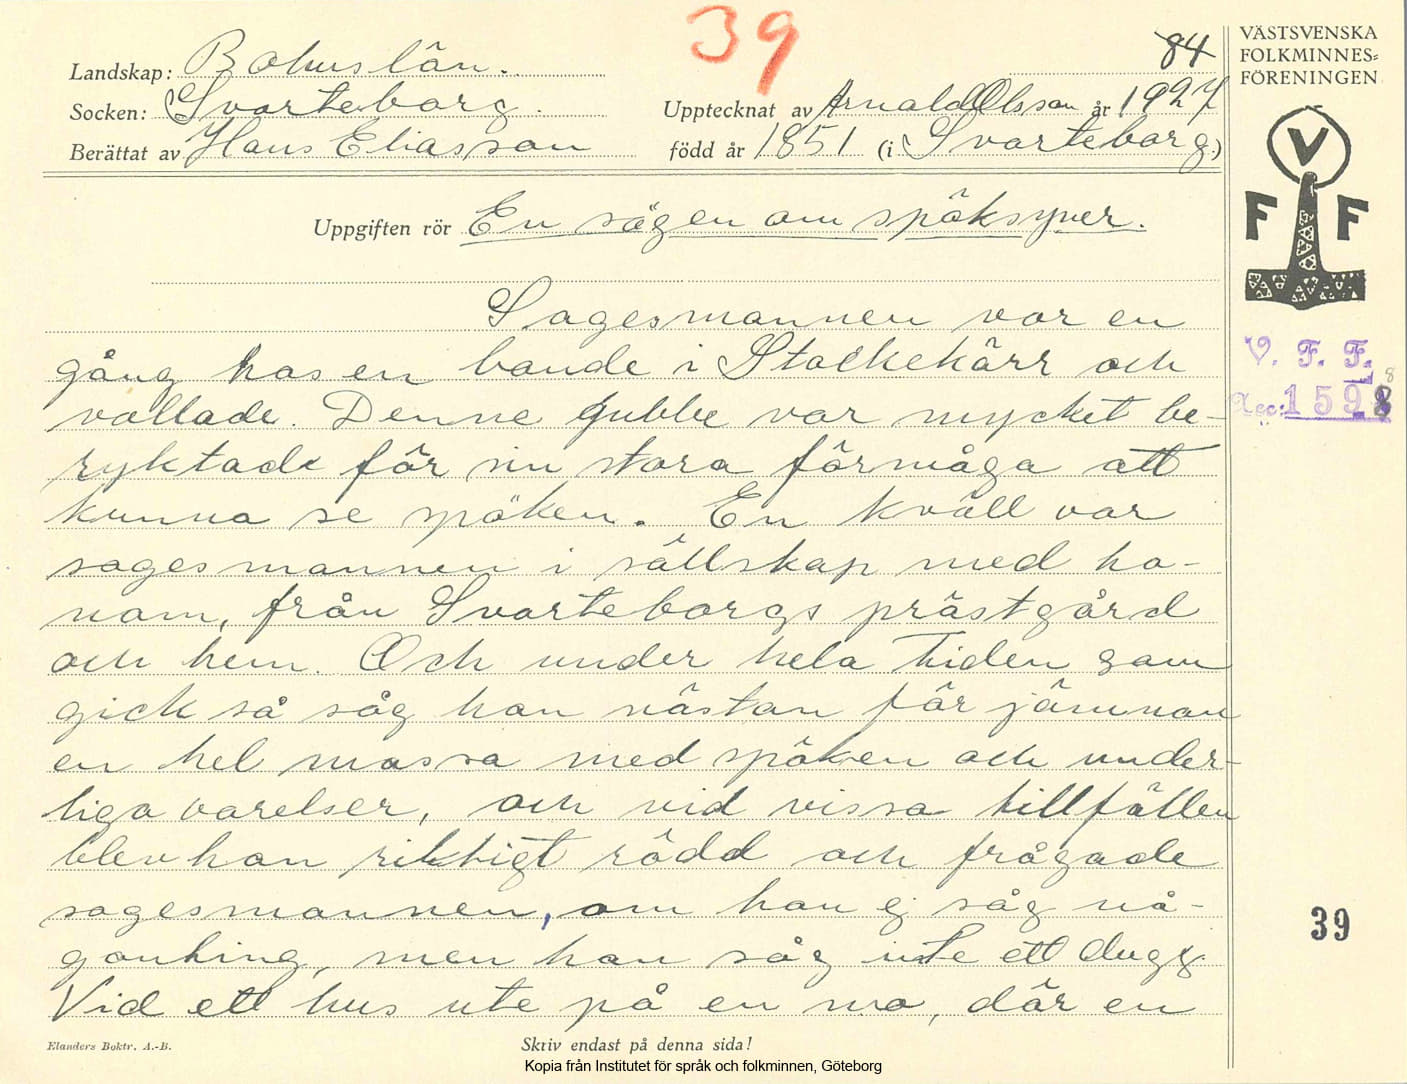 39
84
Landskap: Bohuslän.
Socken: Svarteborg. Upptecknat av Arnold Olsson år 1927
Berättat av Hans Eliasson född år 1851 (i Svarteborg.)
Uppgiften rör En sägen om spöksyner.
Sagesmannen var en
gång hos en bonde i Stockekärr och
vallade. Denne gubbe var mycket be-
ryktade för sin stora förmåga att
kunna se spöken. En kväll var
sagesmannen i sällskap med ho-
nom, från Svarteborgs prästgård
och hem. Och under hela tiden som
gick så såg han nästan för jämnan
en hel massa med spöken och under-
liga varelser, och vid vissa tillfällen
blev han riktigt rädd och frågade
sagesmannen, om han ej såg nå-
gonting, men han såg inte ett dugg.
Vid ett hus ute på en mo, där en
Elanders Boktr. A.-B.
Skriv endast på denna sida!
Kopia från Institutet för språk och folkminnen, Göteborg
VÄSTSVENSKA
FOLKMINNES-
FÖRENINGEN
V
F F
V. F. F.
Acc: 1598
8
39